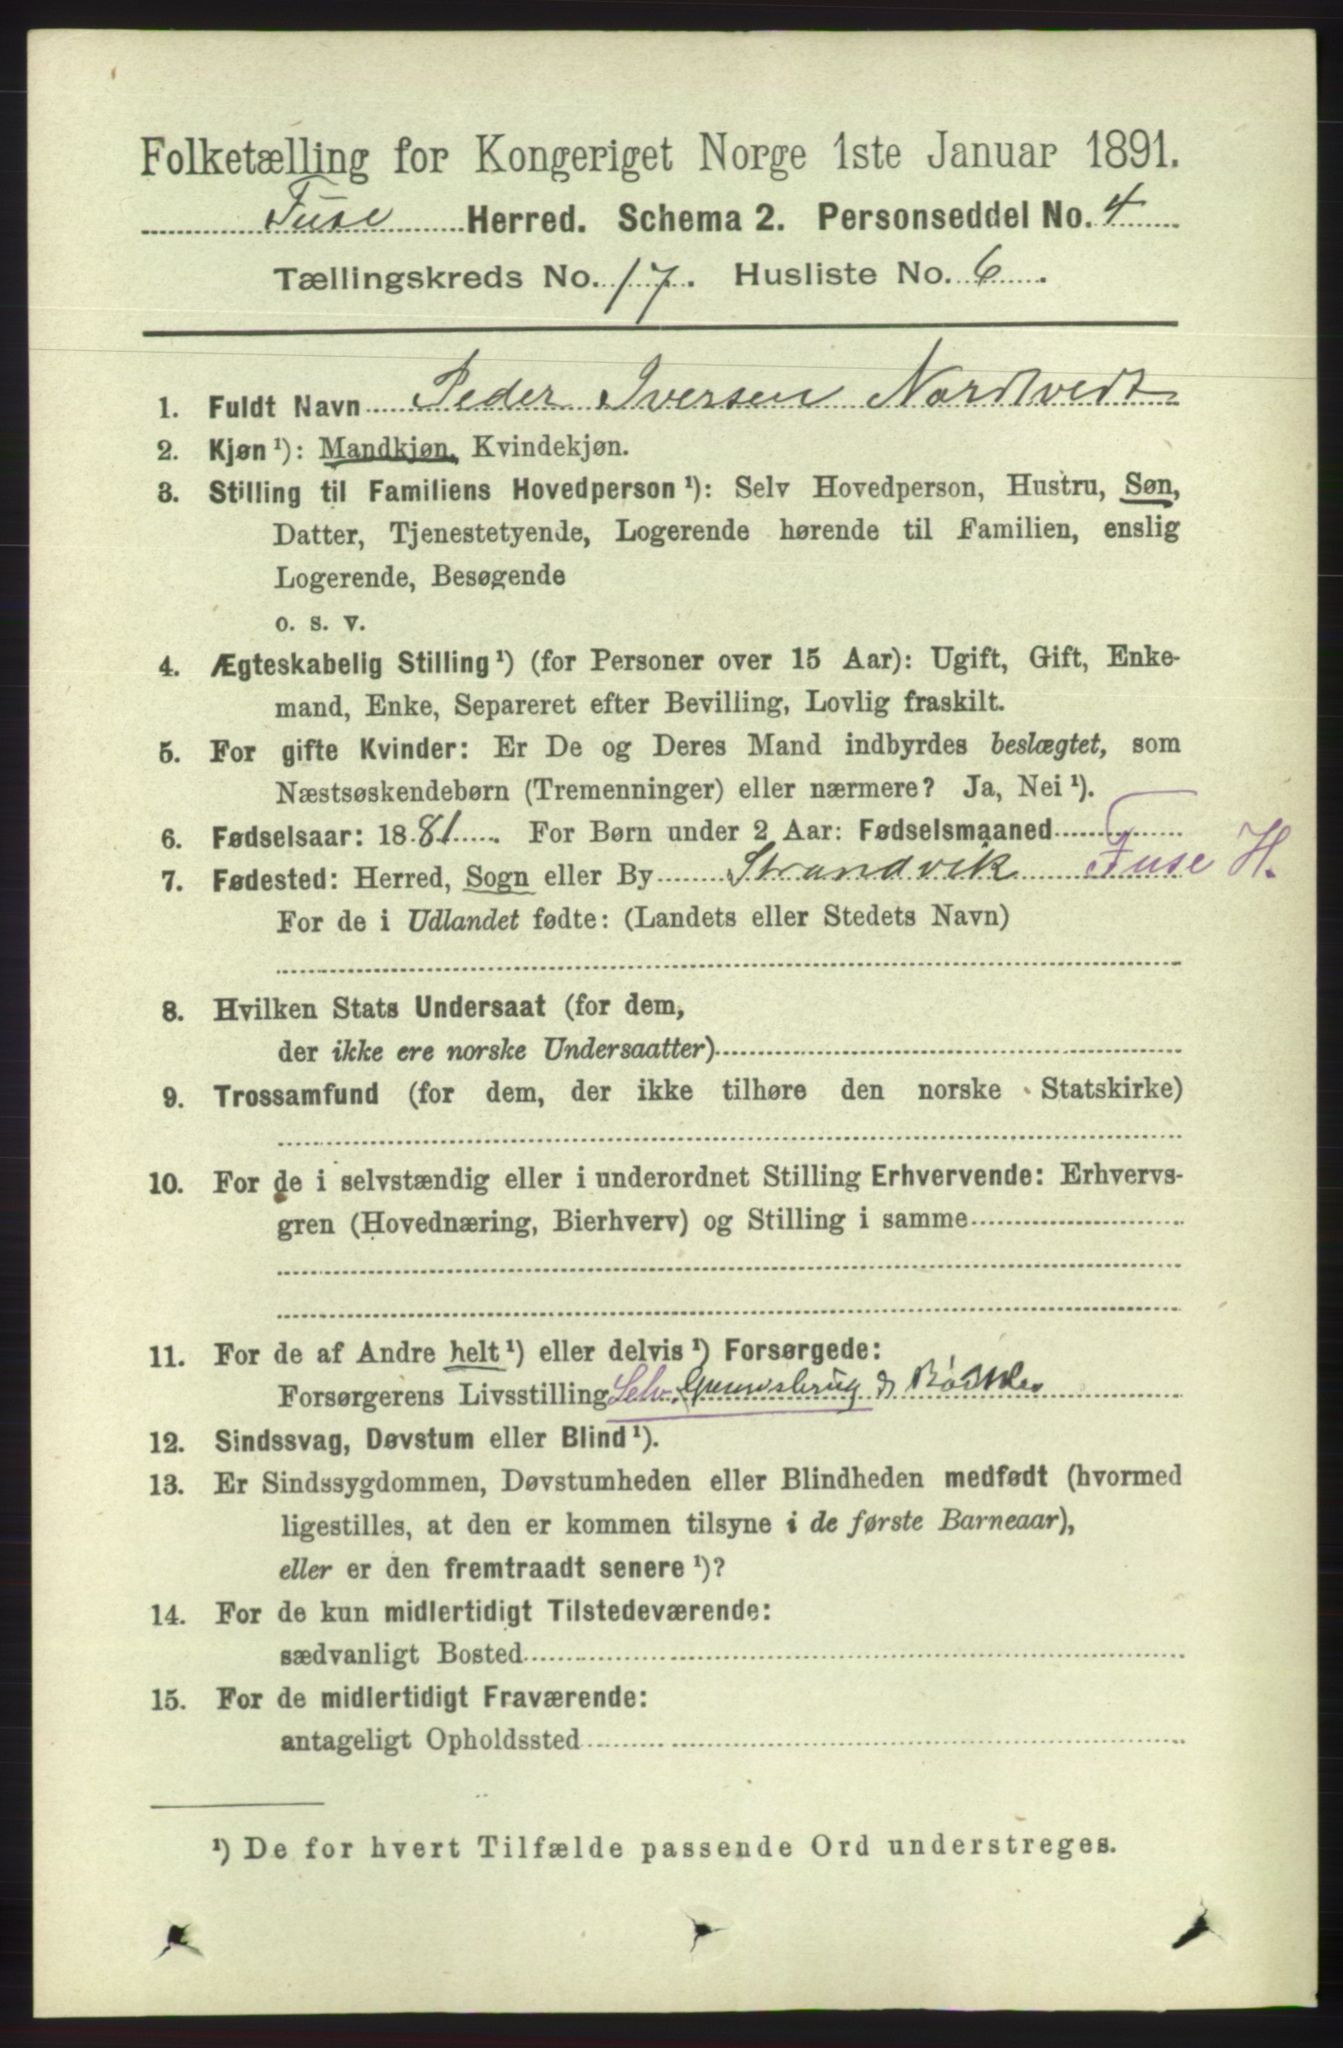 Folketælling for Kongeriget Norge 1ste Januar 1891.
Fuse Herred. Schema 2. Personseddel No. 4
Tællingskreds No. 17. Husliste No. 6.
1. Fuldt Navn Peder Iversen Nordtvedt
2. Kjøn ¹): Mandkjøn, Kvindekjøn.
3. Stilling til Familiens Hovedperson ¹): Selv Hovedperson, Hustru, Søn,
Datter, Tjenestetyende, Logerende hørende til Familien, enslig
Logerende, Besøgende
o. s. v.
4. Ægteskabelig Stilling ¹) (for Personer over 15 Aar): Ugift, Gift, Enke-
mand, Enke, Separeret efter Bevilling, Lovlig fraskilt.
5. For gifte Kvinder: Er De og Deres Mand indbyrdes beslægtet, som
Næstsøskendebørn (Tremenninger) eller nærmere? Ja, Nei ¹).
6. Fødselsaar: 1881. For Børn under 2 Aar: Fødselsmaaned
7. Fødested: Herred, Sogn eller By Strandvik Fuse H.
For de i Udlandet fødte: (Landets eller Stedets Navn)
8. Hvilken Stats Undersaat (for dem,
der ikke ere norske Undersaatter)
9. Trossamfund (for dem, der ikke tilhøre den norske Statskirke)
10. For de i selvstændig eller i underordnet Stilling Erhvervende: Erhvervs-
gren (Hovednæring, Bierhverv) og Stilling i samme
11. For de af Andre helt ¹) eller delvis ¹) Forsørgede:
Forsørgerens Livsstilling Selv.
12. Sindssvag, Døvstum eller Blind ¹).
13. Er Sindssygdommen, Døvstumheden eller Blindheden medfødt (hvormed
ligestilles, at den er kommen tilsyne i de første Barneaar),
eller er den fremtraadt senere ¹)?
14. For de kun midlertidigt Tilstedeværende:
sædvanligt Bosted
15. For de midlertidigt Fraværende:
antageligt Opholdssted
¹) De for hvert Tilfælde passende Ord understreges.